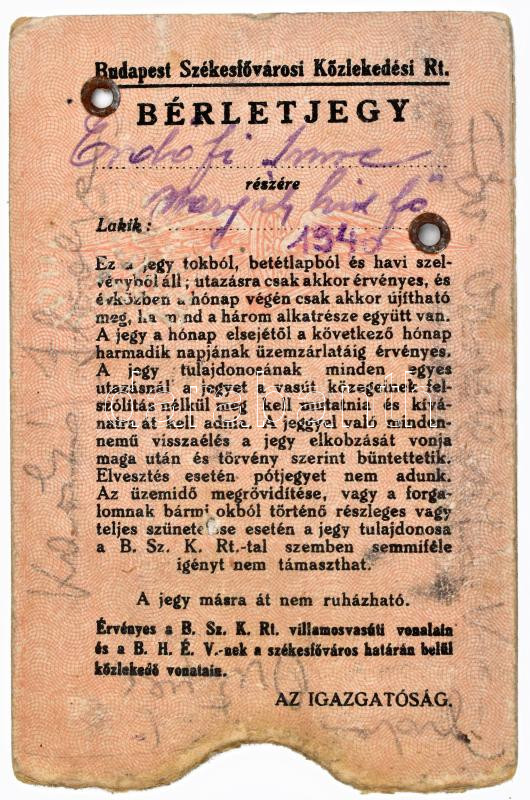 Budapest Székesfővárosi Közlekedési Rt.
BÉRLETJEGY
Imre
részére
Lakik:
194
Ez a jegy tokból, betétlapból és havi szel-
vényből áll; utazásra csak akkor érvényes, és
évközben a hónap végén csak akkor újítható
meg, ha mind a három alkatrésze együtt van.
A jegy a hónap elsejétől a következő hónap
harmadik napjának üzemzárlatáig érvényes.
A jegy tulajdonosának minden egyes
utazásnál a jegyet a vasút közegeinek fel-
szólítás nélkül meg kell mutatnia és kívá-
natra át kell adnia. A jeggyel való minden-
nemű visszaélés a jegy elkobzását vonja
maga után és törvény szerint büntettetik.
Elvesztés esetén pótjegyet nem adunk.
Az üzemidő megrövidítése, vagy a forga-
lomnak bármi okból történő részleges vagy
teljes szünetelése esetén a jegy tulajdonosa
a B. Sz. K. Rt.-tal szemben semmiféle
igényt nem támaszthat.
A jegy másra át nem ruházható.
Érvényes a B. Sz. K. Rt. villamosvasúti vonalain
és a B. H. É. V.-nek a székesfőváros határán belül
közlekedő vonatain.
AZ IGAZGATÓSÁG.